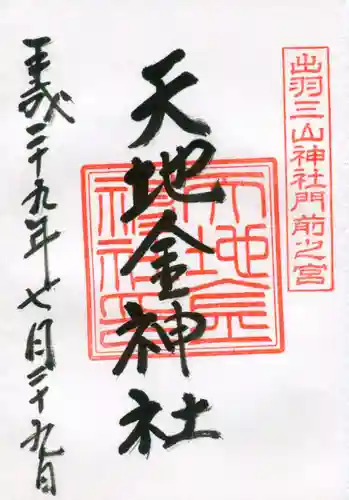 出羽三山神社門前之宮
天地金神社
平成二十九年七月二十九日